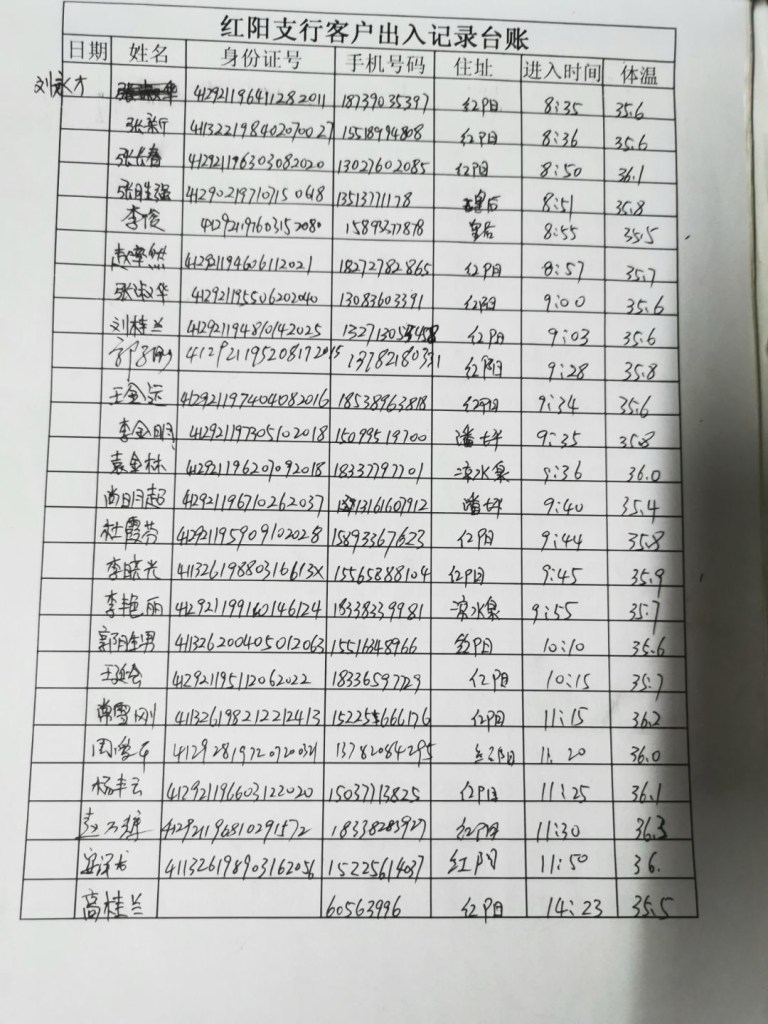 红阳支行客户出入记录台账
日期 姓名 身份证号 手机号码 住址 进入时间 体温
刘永才 412921196411282011 18739035397 红阳 8:35 35.6
张新 411322198402070027 15518994808 红阳 8:36 35.6
张长春 412921196303082020 13027602085 红阳 8:50 36.1
张胜强 412902197107150618 13513771178 皇后 8:51 35.8
李俊 412921197603152080 15893377878 皇后 8:55 35.5
412921194606112021 18272782865 红阳 8:57 35.7
张淑华 412921195506202040 13083603391 红阳 9:00 35.6
刘桂兰 412921194810142025 红阳 9:03 35.6
412921195208172015 红阳 9:28 35.8
王金运 412921197404082016 18538963818 红阳 9:34 35.6
李金明 412921197305102018 15099519700 潘坪 9:35 35.8
袁金林 412921196207092018 18337797701 凉水泉 9:36 36.0
尚明超 412921196710262037 13161607912 潘坪 9:40 35.4
杜霞芬 412921195909102028 15893367623 红阳 9:44 35.8
李晓光 41132619880316613X 15565888104 红阳 9:45 35.9
李艳丽 412921199160146124 18338339981 凉水泉 9:55 35.7
郭胜男 411326200405012063 15516348966 红阳 10:10 35.6
王延会 412921195112062022 18336597729 红阳 10:15 35.7
常雪刚 411326198212212413 红阳 11:15 36.2
13782084295 红阳 11:20 36.0
杨丰云 412921196603122020 15037713825 红阳 11:25 36.1
412921196810291572 18338283927 红阳 11:30 36.3
411326198903162056 15225614037 红阳 11:50 36.
高桂兰 60563996 红阳 14:23 35.5